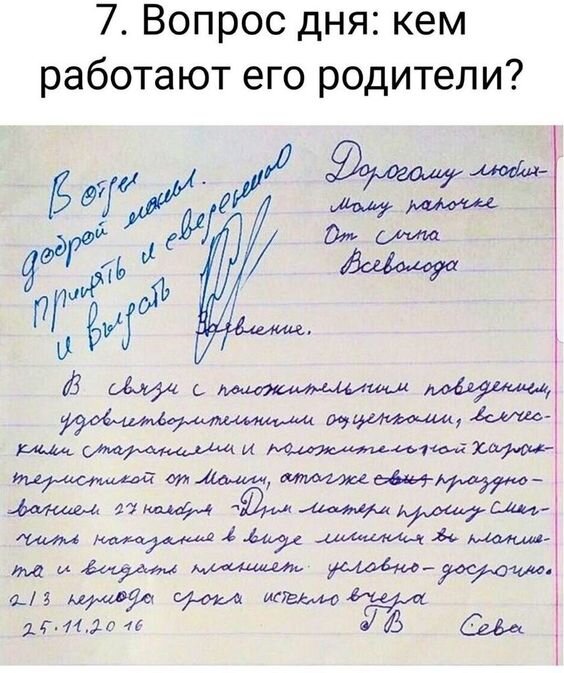 7. Вопрос дня: кем
работают его родители?
В отдел
доброй мамы.
принять к сведению
и выдать
Дорогому люби-
мому папочке
От сына
Всеволода
Заявление.
В связи с положительным поведением,
удовлетворительными оценками, всячес-
кими стараниями и положительной харак-
теристикой от Мамы, а также праздно-
ванием 27 ноября - Дня матери прошу смяг-
чить наказание в виде лишения планше-
та и выдать планшет условно-досрочно.
2/3 периода срока истекло вчера
25.11.2016 Сева